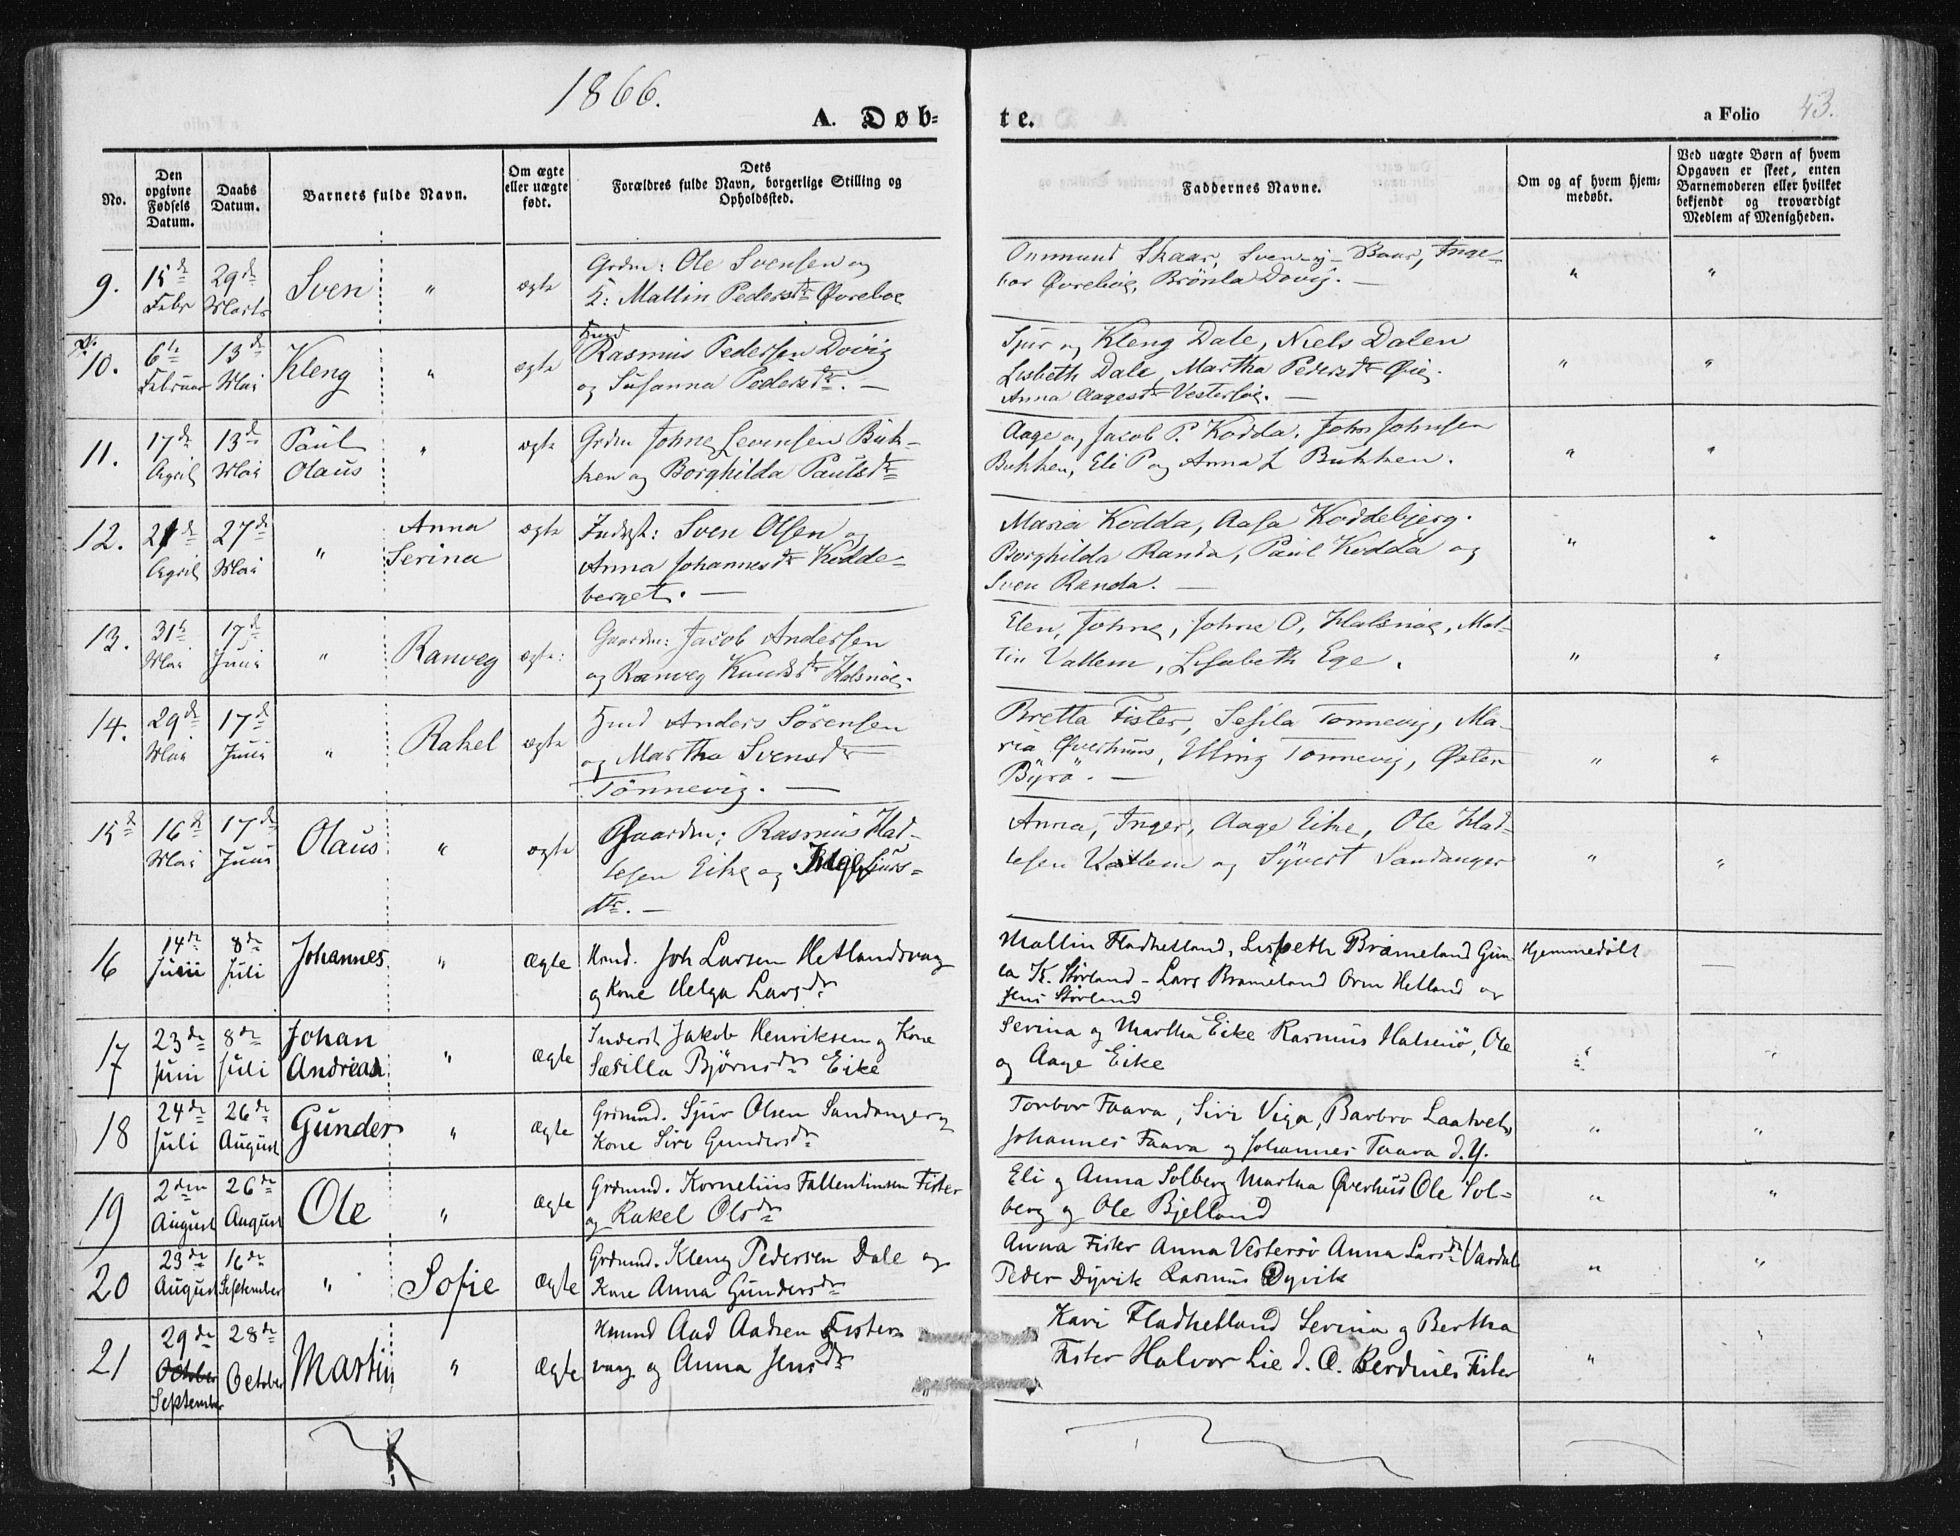 1866.
A. Døb-
te.
a Folio 43.
No.
Den opgivne Fødsels Datum.
Daabs Datum.
Barnets fulde Navn.
Om ægte eller uægte født.
Dets Forældres fulde Navn, borgerlige Stilling og Opholdssted.
Faddernes Navne.
Om og af hvem hjem-
medøbt.
Ved uægte Børn af hvem
Opgaven er skeet, enten
Barnemoderen eller hvilket
bekjendt og troværdigt
Medlem af Menigheden.
9. 15de Febr 29de Marts Sven " ægte
Grdm: Ole Svensen og
K: Mallin Pedersdtr Øvrebøe
Onmund Skaar, Svend Baar, Inge-
bor Øvrebøe, Brönla Dovig. —
" "
10. 6te Februar 13de Mai Kleng " ægte
Hmd Rasmus Pedersen Dovig
og Susanna Pedersdtr. —
Sjur og Kleng Dale, Niels Dalen
Lisbeth Dale, Martha Pedersdtr Øie.
Anna Aagesdtr Vestersøe. —
" "
11. 17de April 13de Mai Paul Olaus " ægte
Grdm Johne Sevensen Buk-
ken og Borghilda Paulsdtr
Aage og Jacob P. Kodda. John Johnsen
Bukken, Eli P og Anna L Bukken.
" "
12. 21de April 27de Mai " Anna Serina ægte
Inderst: Sven Olsen og
Anna Johannesdtr Kodde-
berget. —
Maria Kodda, Aasa Koddebjerg.
Borghilda Randa, Paul Kodda og
Sven Randa. —
" "
13. 31te Mai 17de Juni " Ranveg ægte:
Gaardm: Jacob Andersen
og Ranveg Knudsdtr Halsnøe.
Elen, Johne, Johne O, Halsnøe, Mal-
lin Vatlem, Lisabeth Ege.
" "
14. 29de Mai 17de Juni " Rakel ægte
Hmd Anders Sörensen
og Martha Svensdtr
Tönnevig. —
Bretta Fister, Sesila Tonnevig, Ma-
ria Øverhuus, Elling Tonnevig, Østen
Byrö. —
" "
15d 16de Mai 17de Juni Olaus " ægte
Gaardm: Rasmus Had-
lesen Eike og Sjurs-
dtr. —
Anna, Inger, Aage Eike, Ole Had-
lesen Vatlem og Syvert Sandanger
" "
16 14de Juni 8de Juli Johannes " Ægte
Hmd. Joh Larsen Hetlandsvag
og Kone Helga Larsdtr
Mallin Fladhetland, Lisbeth Brameland Gun
la K. Störland - Lars Brameland Orm Hetland og
Jens Störland
Hjemmedøbt —
17 23de Juni 8de Juli Johan Andreas " Ægte
Inderst Jakob Henriksen og Kone
Sæsilla Bjørnsdtr Eike
Serina og Martha Eike Rasmus Halsnö, Ole
og Aage Eike
" "
18 24de Juli 26de August Gunder " Ægte
Grdmnd. Sjur Olsen Sandanger og
Kone Siri Gundersdtr
Torbor Faava, Siri Viga, Barbro Laatveit
Johannes Faava og Johannes Faava d.Y.
" "
19 2den August 26de August Ole " Ægte
Grdmnd. Kornelius Fallentinsen Fister
og Rakel Olsdtr
Eli og Anna Solberg Martha Øverhus Ole Sol-
berg og Ole Bjelland
" "
20 23de August 16de September " Sofie Ægte
Grdmnd. Kleng Pedersen Dale og
Kone Anna Gundersdtr
Anna Fister Anna Vestersö Anna Larsdtr Vardal
Peder Dyvik Rasmus Dyvik
" "
21 29de October September 28de October Martin " Ægte
Hmmd Aad Aadsen Fister-
vaag og Anna Jensdtr
Kari Fladhetland Serina og Bertha
Fister Halvor Lie d. Æ. Berdines Fister
" "